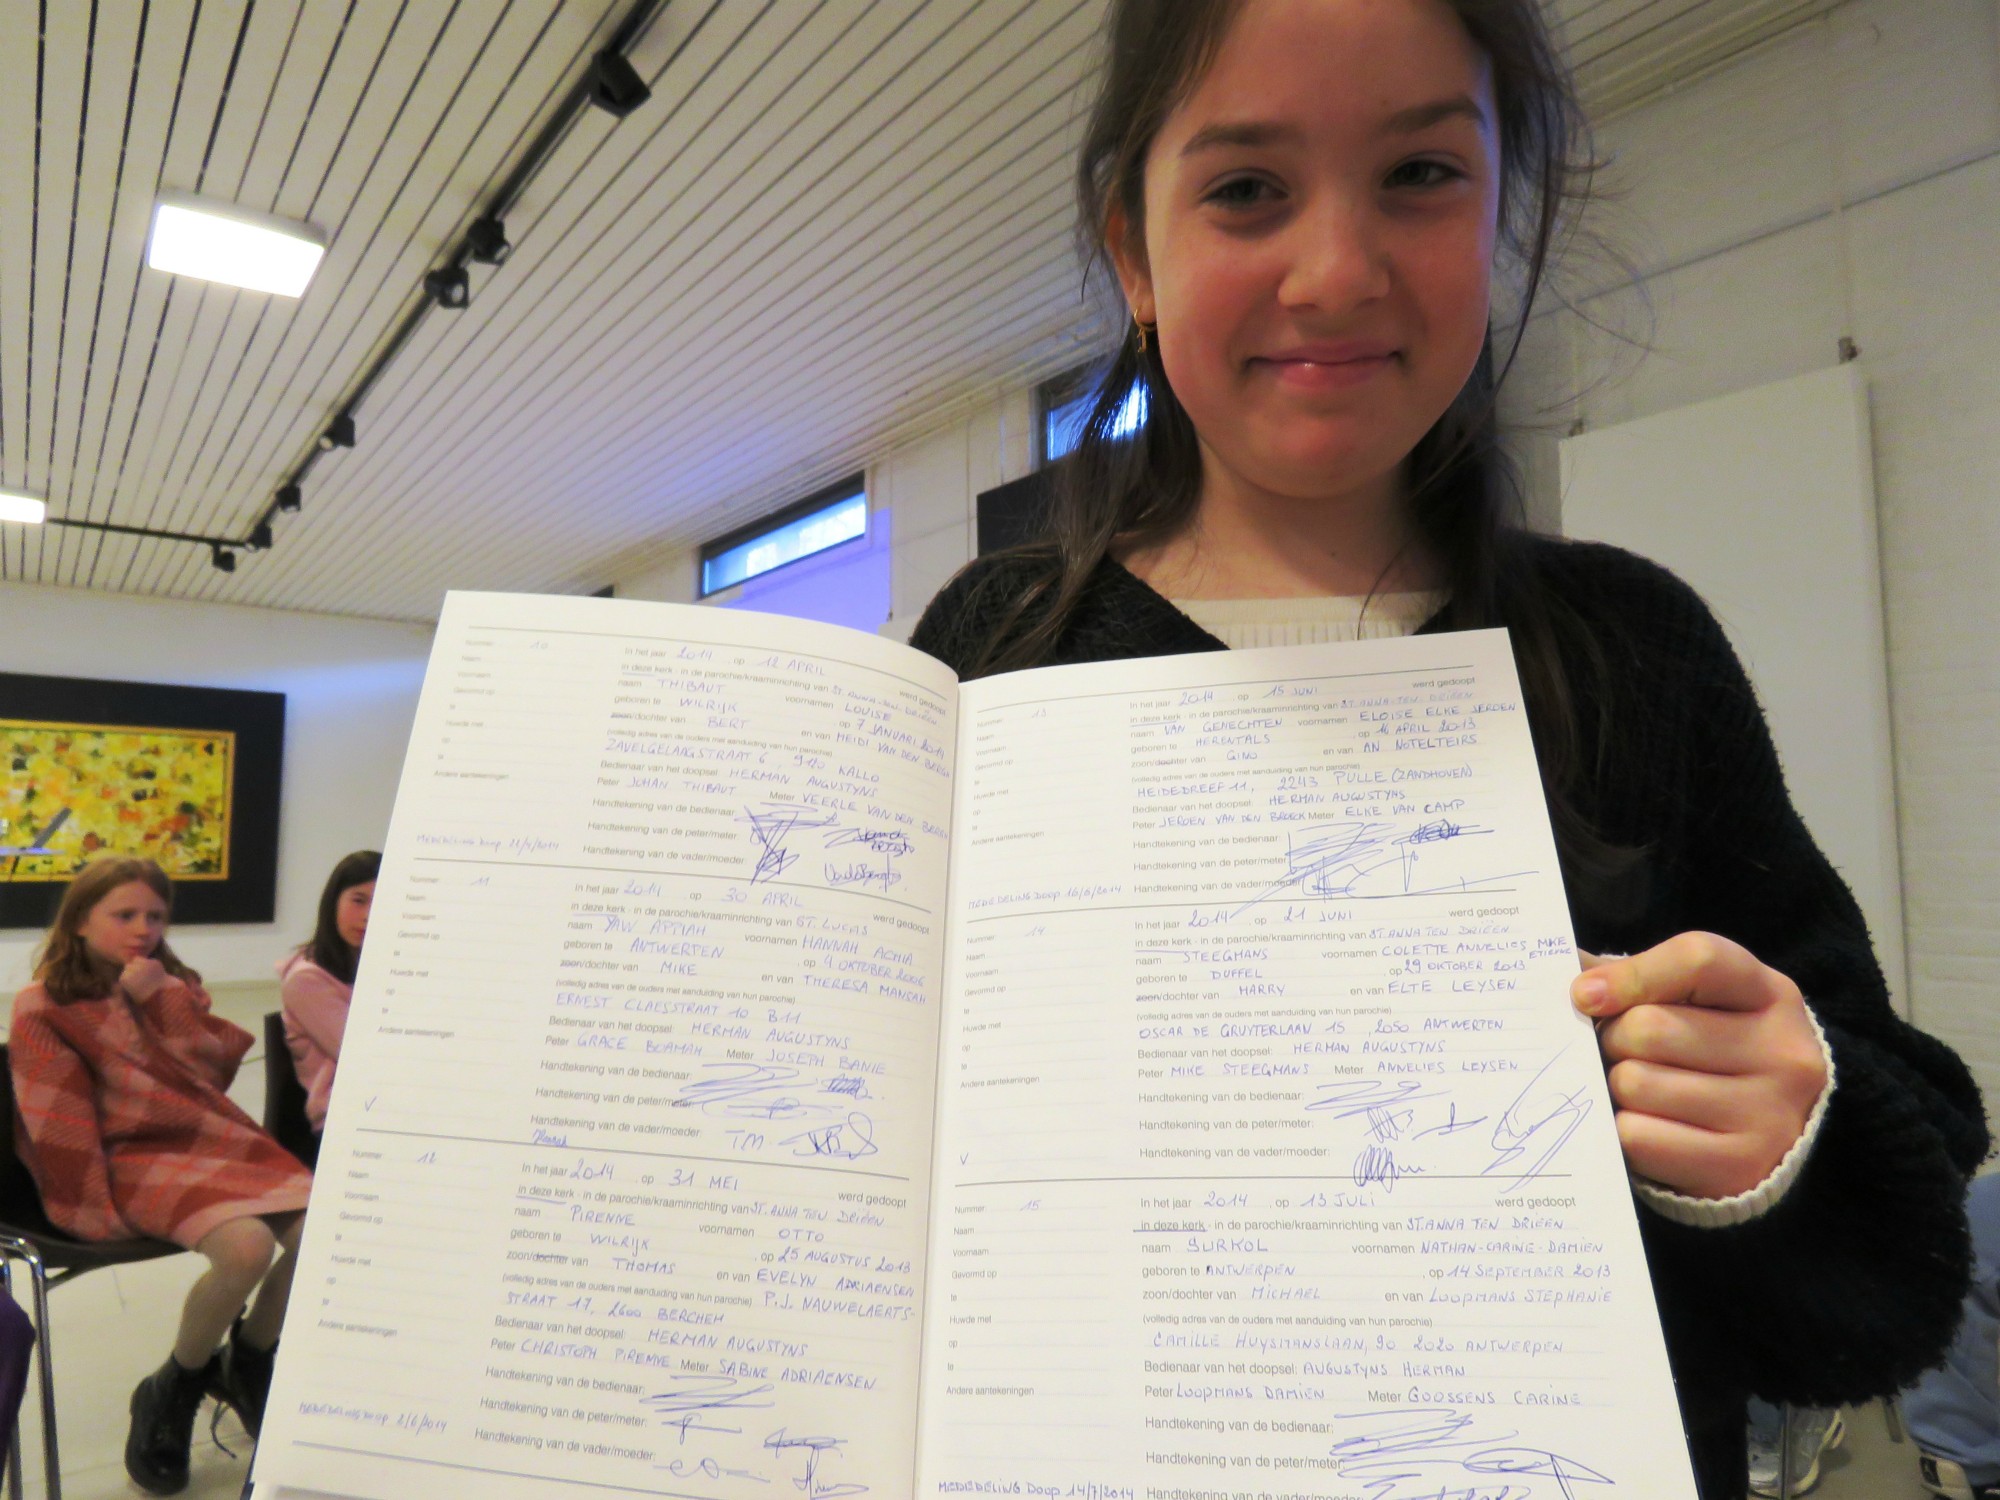 Nummer 10
Naam
Voornaam
Gevormd op
te
Huwde met
op
te
Andere aantekeningen
MEDEDELING DOOP 22/4/2014
In het jaar 2014 , op 12 APRIL
werd gedoopt
in deze kerk - in de parochie/kraaminrichting van ST. ANNA-TEN-DRIEËN
naam THIBAUT voornamen LOUISE
geboren te WILRIJK , op 7 JANUARI 2014
zoon/dochter van BERT en van HEIDI VAN DEN BERGH
(volledig adres van de ouders met aanduiding van hun parochie)
ZAVELGELAAGSTRAAT 6, 9120 KALLO
Bedienaar van het doopsel: HERMAN AUGUSTYNS
Peter JOHAN THIBAUT Meter VEERLE VAN DEN BERGH
Handtekening van de bedienaar:
Handtekening van de peter/meter:
Handtekening van de vader/moeder:
Nummer 11
Naam
Voornaam
Gevormd op
te
Huwde met
op
te
Andere aantekeningen
V
In het jaar 2014 op 30 APRIL
werd gedoopt
in deze kerk - in de parochie/kraaminrichting van ST. LUCAS
naam YAW APPIAH voornamen HANNAH ACHIA
geboren te ANTWERPEN , op 4 OKTOBER 2006
zoon/dochter van MIKE en van THERESA MANSAH
(volledig adres van de ouders met aanduiding van hun parochie)
ERNEST CLAESSTRAAT 10 B11
Bedienaar van het doopsel: HERMAN AUGUSTYNS
Peter GRACE BOAMAH Meter JOSEPH BANIE
Handtekening van de bedienaar:
Handtekening van de peter/meter:
Handtekening van de vader/moeder: TM
Nummer 12
Naam
Voornaam
Gevormd op
te
Huwde met
op
te
Andere aantekeningen
MEDEDELING DOOP 2/6/2014
In het jaar 2014 , op 31 MEI
werd gedoopt
in deze kerk - in de parochie/kraaminrichting van ST. ANNA TEN DRIEËN
naam PIRENNE voornamen OTTO
geboren te WILRIJK , op 25 AUGUSTUS 2013
zoon/dochter van THOMAS en van EVELYN ADRIAENSEN
(volledig adres van de ouders met aanduiding van hun parochie) P.J. NAUWELAERTS-
STRAAT 17, 2600 BERCHEM
Bedienaar van het doopsel: HERMAN AUGUSTYNS
Peter CHRISTOPH PIRENNE Meter SABINE ADRIAENSEN
Handtekening van de bedienaar:
Handtekening van de peter/meter:
Handtekening van de vader/moeder:
Nummer 13
Naam
Voornaam
Gevormd op
te
Huwde met
op
te
Andere aantekeningen
MEDEDELING DOOP 16/6/2014
In het jaar 2014 , op 15 JUNI werd gedoopt
in deze kerk - in de parochie/kraaminrichting van ST. ANNA-TEN. DRIEËN
naam VAN GENECHTEN voornamen ELOISE ELKE JEROEN
geboren te HERENTALS , op 16 APRIL 2013
zoon/dochter van GINO en van AN. NOTELTEIRS
(volledig adres van de ouders met aanduiding van hun parochie)
HEIDEDREEF 11, 2243 PULLE (ZANDHOVEN)
Bedienaar van het doopsel: HERMAN AUGUSTYNS
Peter JEROEN VAN DEN BROECK Meter ELKE VAN CAMP
Handtekening van de bedienaar:
Handtekening van de peter/meter:
Handtekening van de vader/moeder:
Nummer 14
Naam
Voornaam
Gevormd op
te
Huwde met
op
te
Andere aantekeningen
V
In het jaar 2014 , op 21 JUNI werd gedoopt
in deze kerk - in de parochie/kraaminrichting van ST. ANNA TEN DRIEËN
naam STEEGMANS voornamen COLETTE ANNELIES MIKE ETIENNE
geboren te DUFFEL , op 29 OKTOBER 2013
zoon/dochter van HARRY en van ELTE LEYSEN
(volledig adres van de ouders met aanduiding van hun parochie)
OSCAR DE GRUYTERLAAN 15 , 2050 ANTWERPEN
Bedienaar van het doopsel: HERMAN AUGUSTYNS
Peter MIKE STEEGMANS Meter ANNELIES LEYSEN
Handtekening van de bedienaar:
Handtekening van de peter/meter:
Handtekening van de vader/moeder:
Nummer 15
Naam
Voornaam
Gevormd op
te
Huwde met
op
te
Andere aantekeningen
MEDEDELING DOOP 14/7/2014
In het jaar 2014 , op 13 JULI werd gedoopt
in deze kerk - in de parochie/kraaminrichting van ST. ANNA TEN DRIEËN
naam SURKOL voornamen NATHAN-CARINE-DAMIEN
geboren te ANTWERPEN , op 14 SEPTEMBER 2013
zoon/dochter van MICHAEL en van LOOPMANS STEPHANIE
(volledig adres van de ouders met aanduiding van hun parochie)
CAMILLE HUYSMANSLAAN, 90 2020 ANTWERPEN
Bedienaar van het doopsel: AUGUSTYNS HERMAN
Peter LOOPMANS DAMIEN Meter GOOSSENS CARINE
Handtekening van de bedienaar:
Handtekening van de peter/meter:
Handtekening van de vader/moeder: